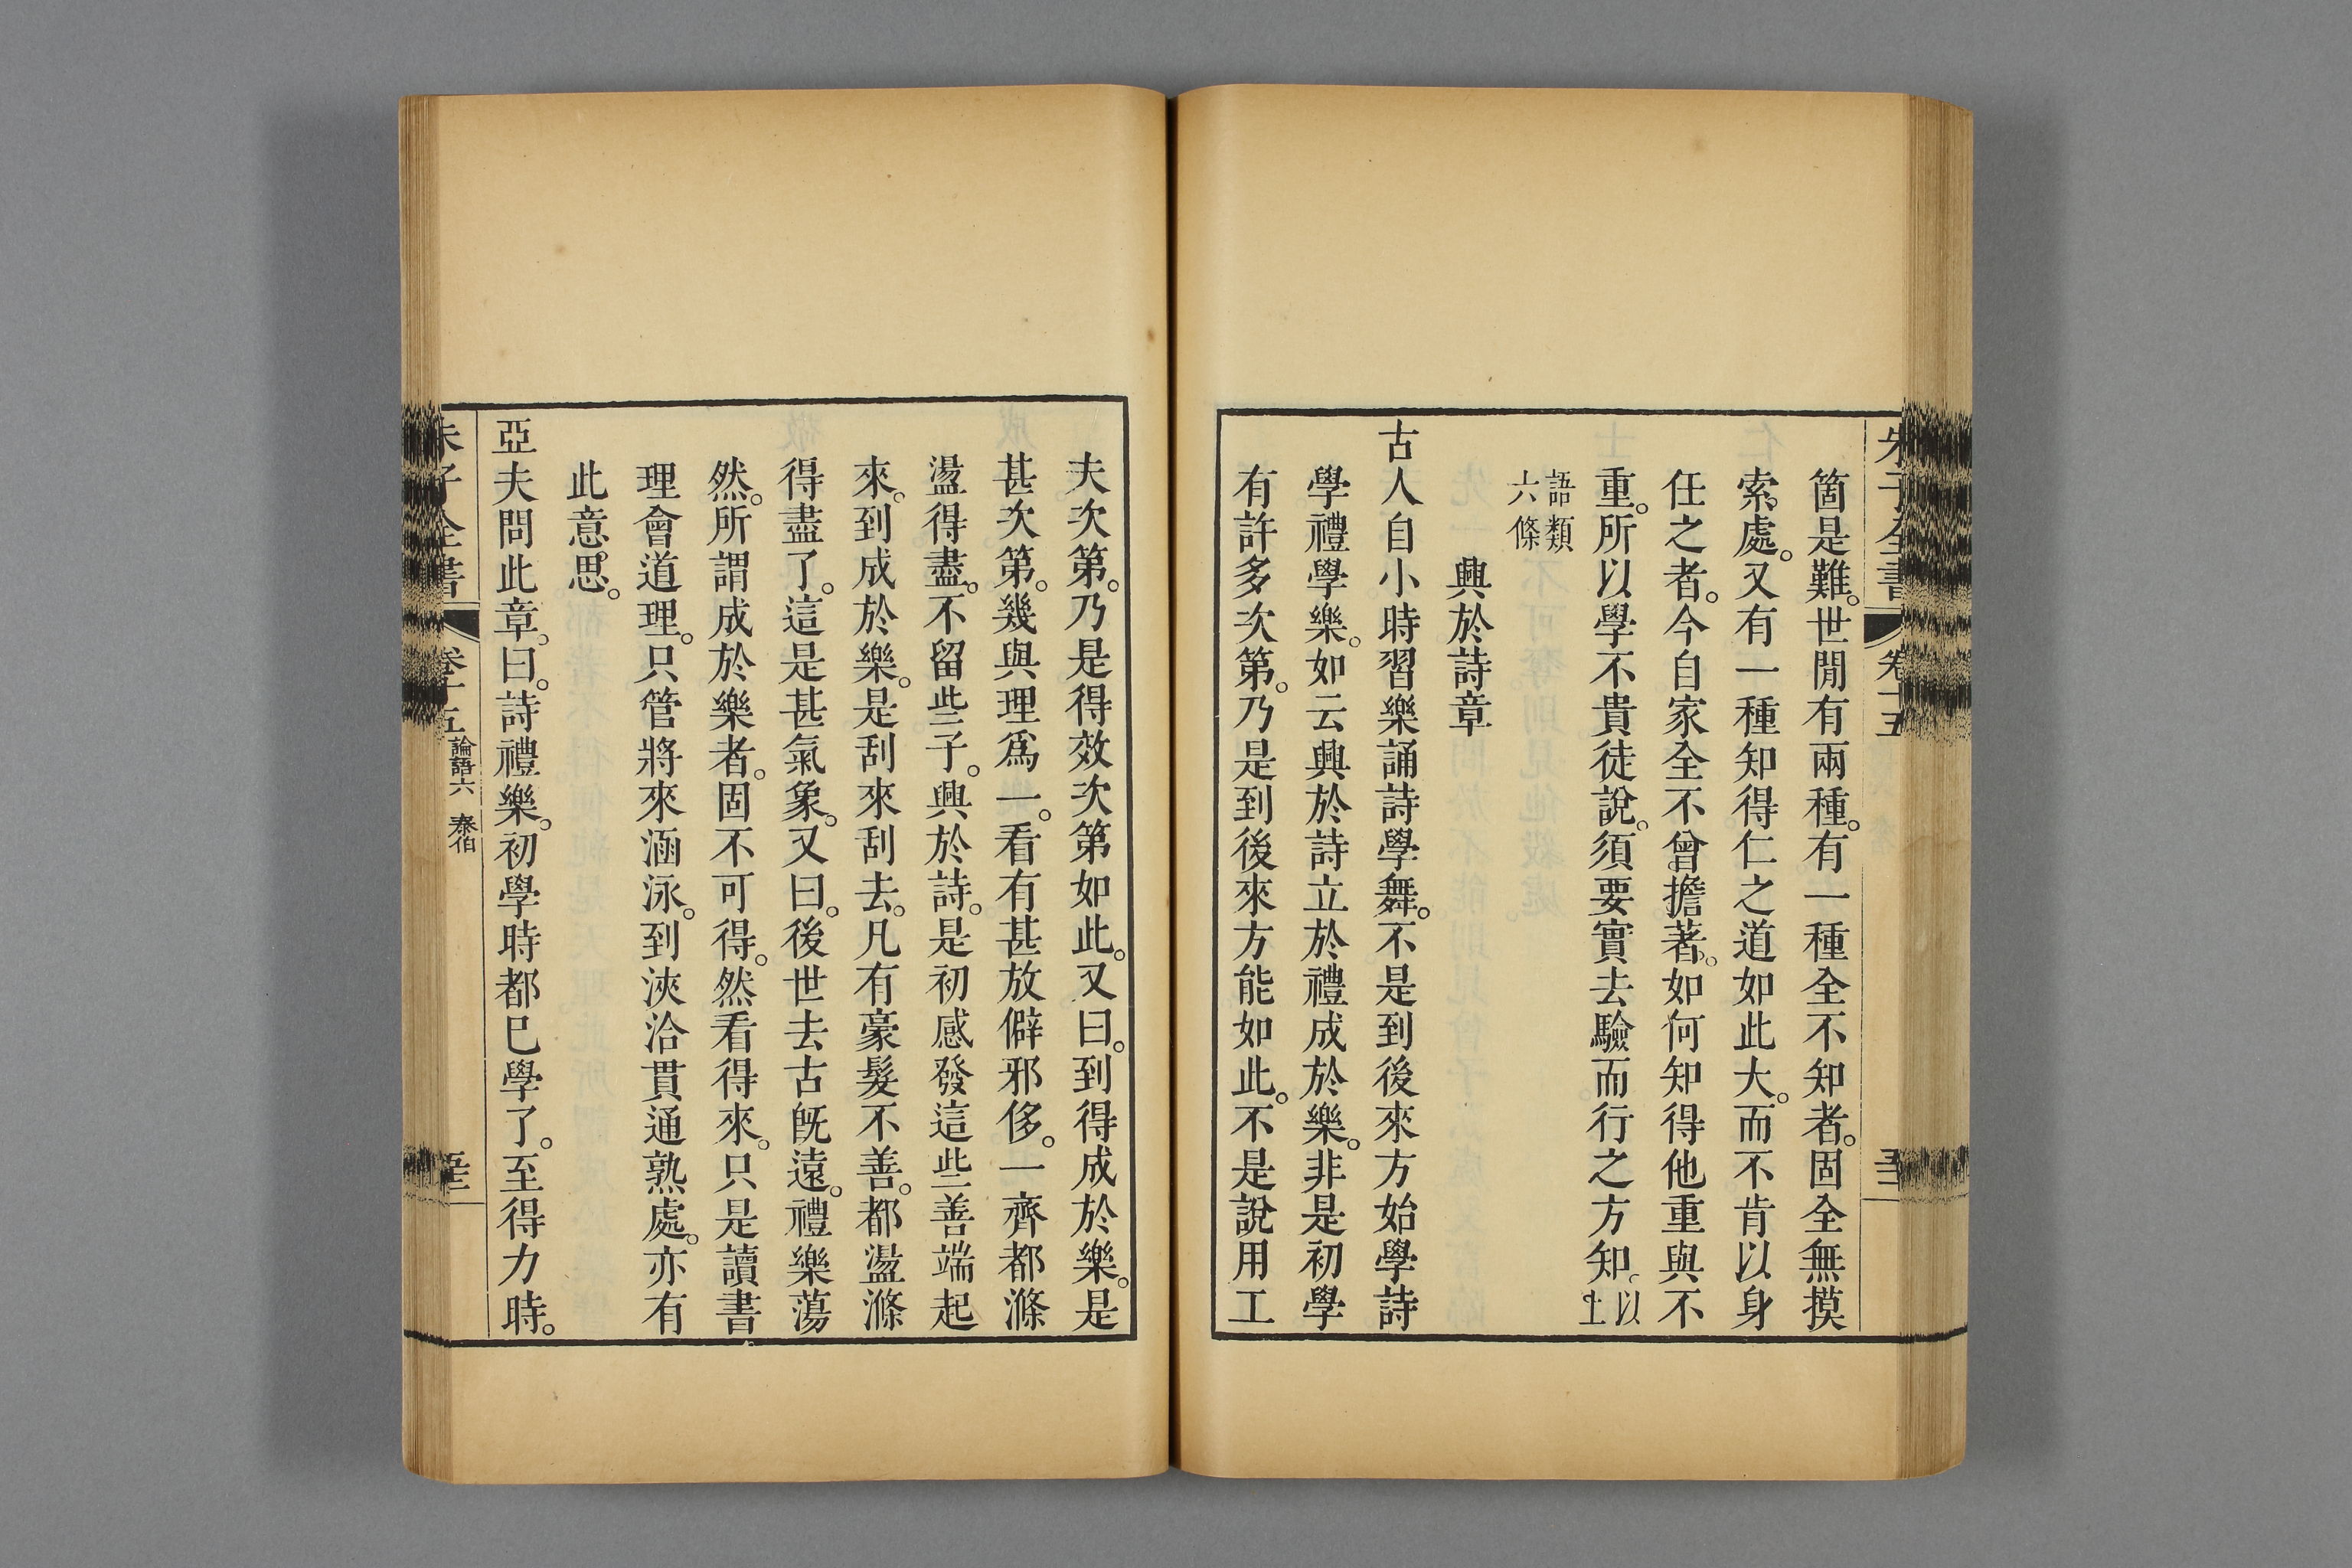 朱子全書 卷十五
箇是難。世閒有兩種。有一種全不知者。固全無摸
索處。又有一種知得仁之道如此大。而不肯以身
任之者。今自家全不曾擔著。如何知得他重與不
重。所以學不貴徒說。須要實去驗而行之方知。以上
語類六條
興於詩章
古人自小時習樂誦詩學舞。不是到後來方始學詩
學禮學樂。如云興於詩立於禮成於樂。非是初學
有許多次第。乃是到後來方能如此。不是說用工
夫次第。乃是得效次第如此。又曰。到得成於樂。是
甚次第。幾與理爲一。看有甚放僻邪侈。一齊都滌
盪得盡。不留些子。興於詩。是初感發這些善端起
來。到成於樂。是刮來刮去。凡有豪髮不善。都盪滌
得盡了。這是甚氣象。又曰。後世去古旣遠。禮樂蕩
然。所謂成於樂者。固不可得。然看得來。只是讀書
理會道理。只管將來涵泳。到浹洽貫通熟處。亦有
此意思。
亞夫問此章。曰。詩禮樂。初學時都已學了。至得力時。
朱子全書 卷十五 論語六 泰伯